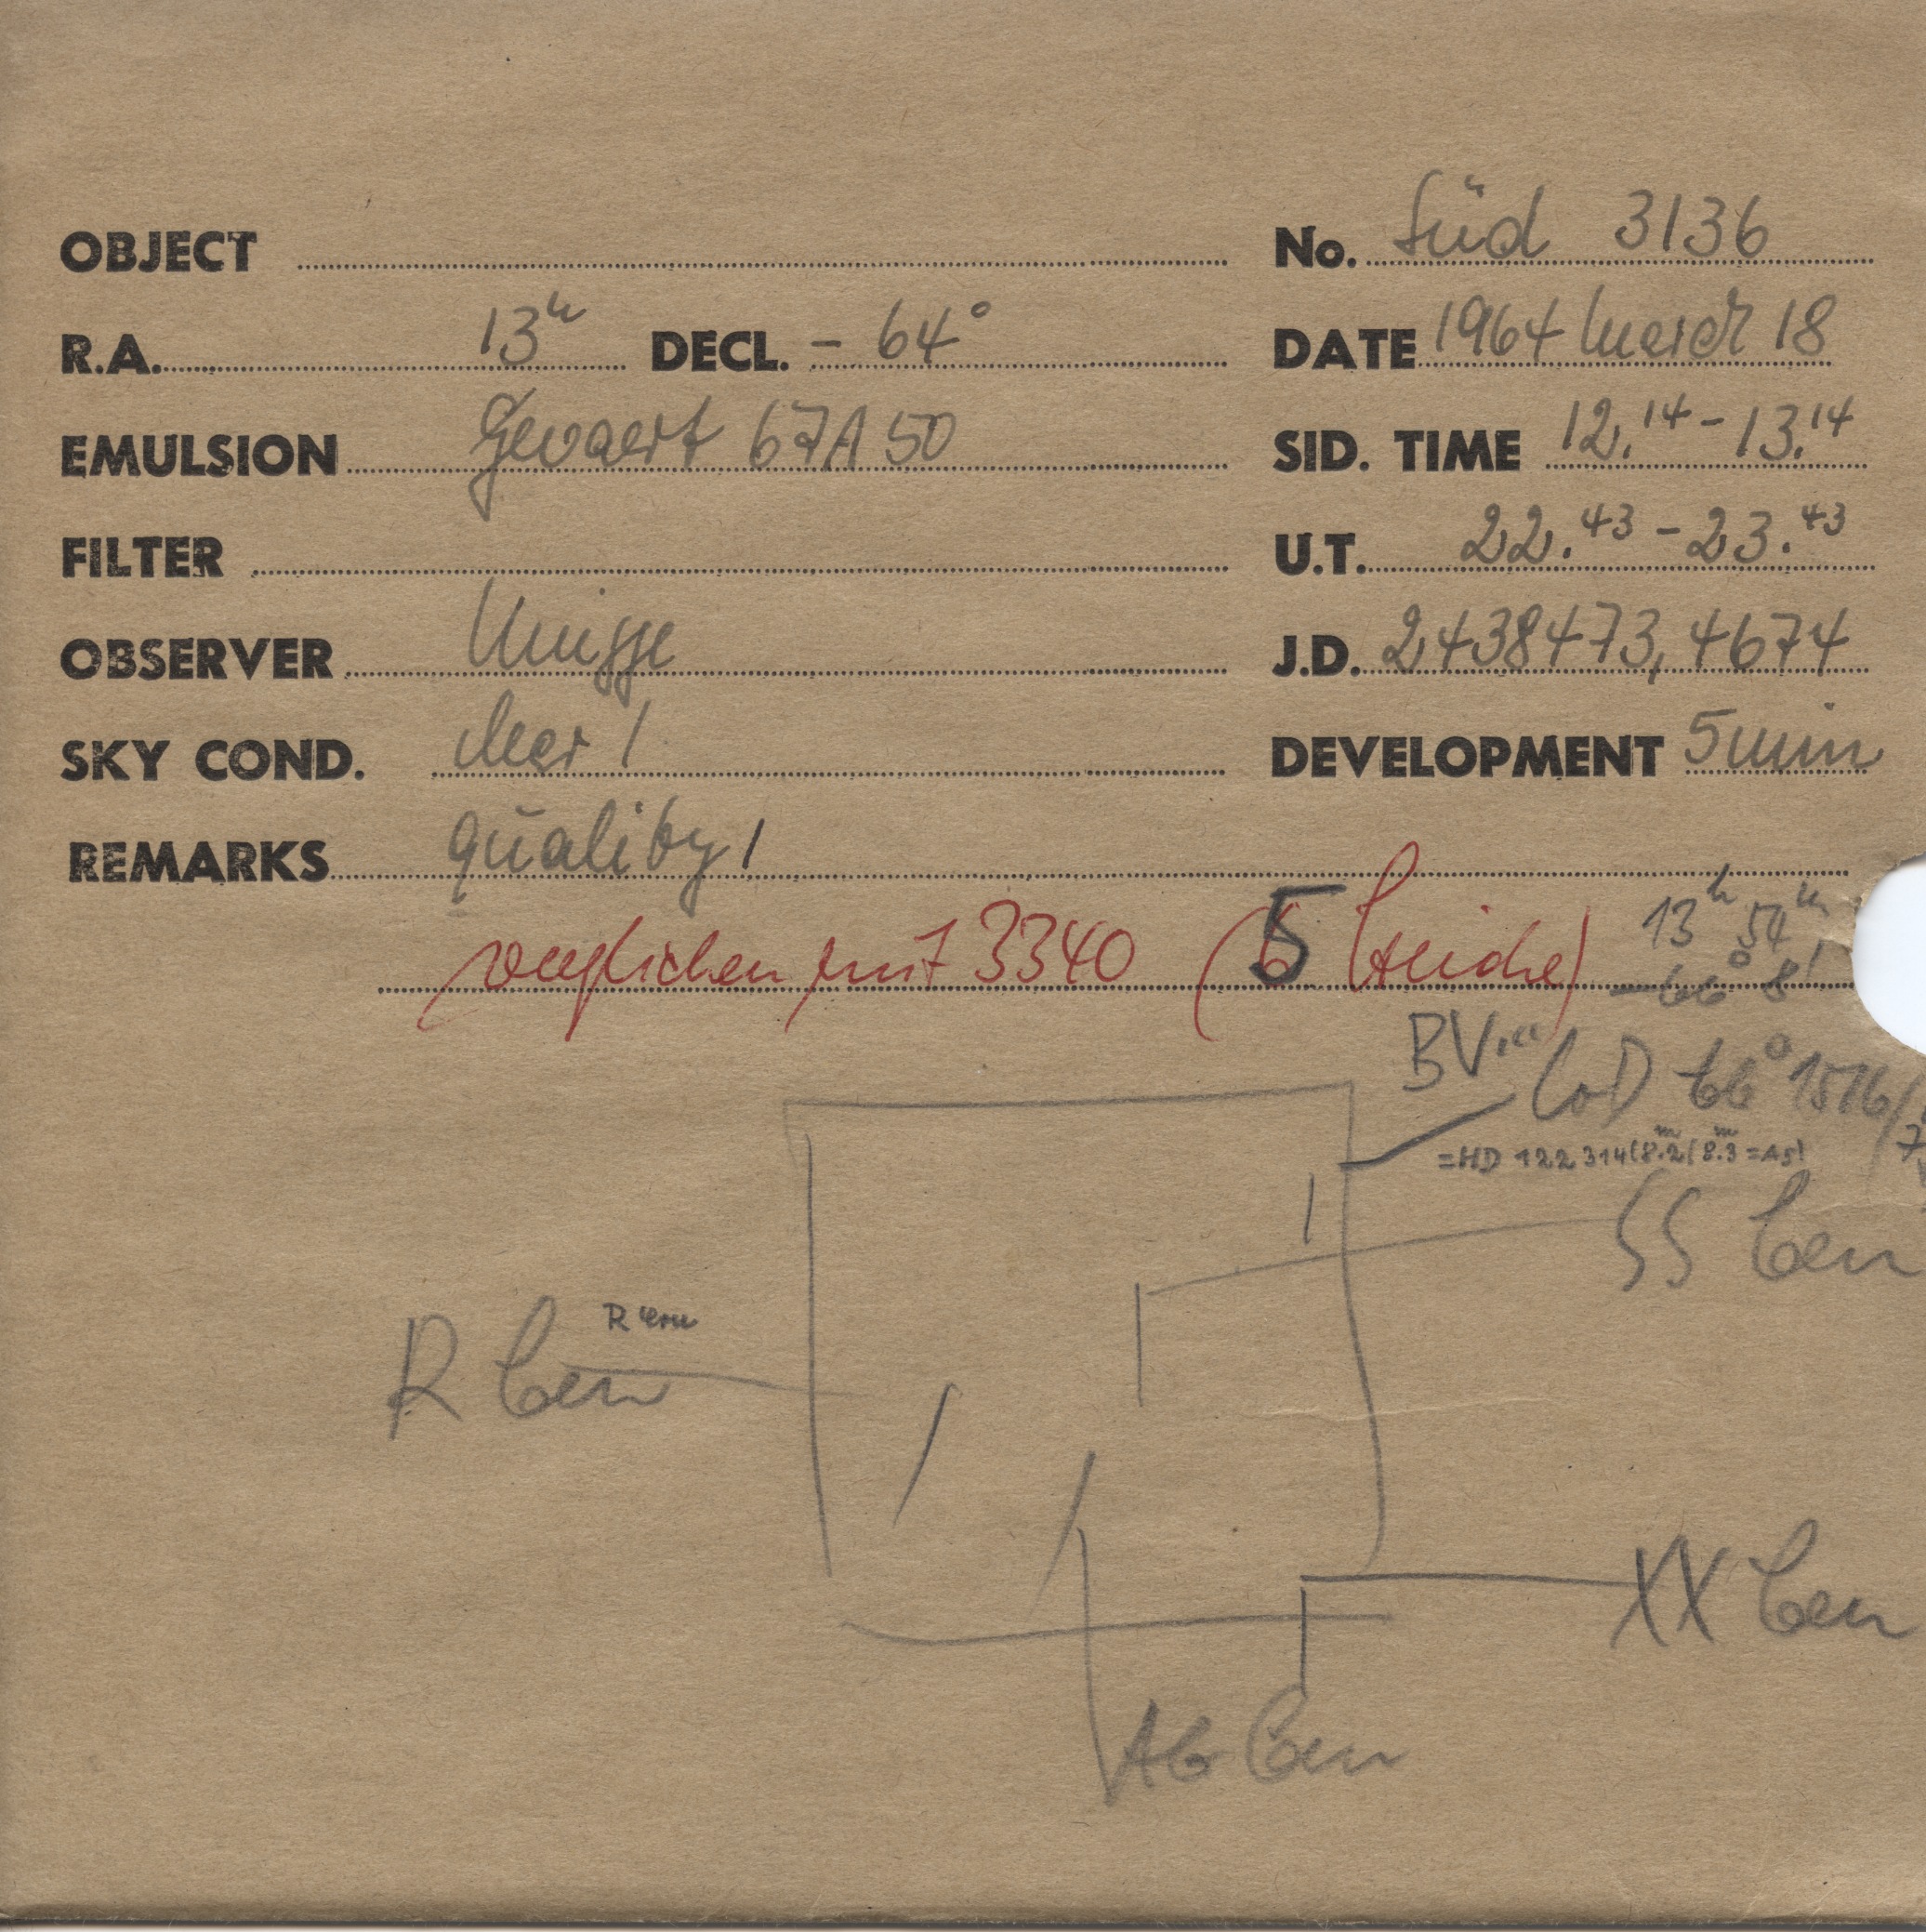 OBJECT No. Süd 3136
R.A. 13h DECL. - 64°
DATE 1964 March 18
EMULSION Gevaert 67A50
SID. TIME 12.14 - 13.14
FILTER U.T. 22.43 - 23.43
OBSERVER J.D. 2438473,4674
SKY COND. clear 1
DEVELOPMENT 5 min
REMARKS quality 1
verglichen mit 3340 (5 Striche)
13h 54m
-66° 8'
BV... CoD 66° 1516/
=HD 122314 (8.2m/8.3m=A5)
SS Cen
R Cen
R Cen
XX Cen
AC Cen